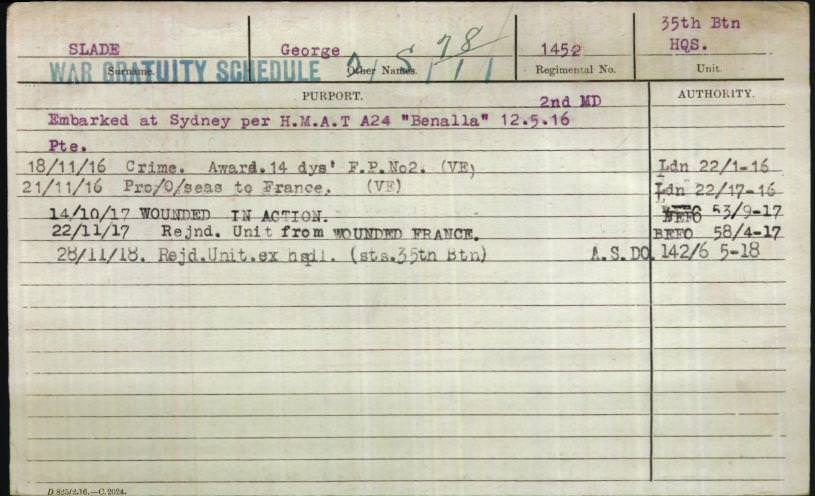 35th Btn
SLADE George 1452 HQS.
WAR GRATUITY SCHEDULE
Surname. Other Names. Regimental No. Unit.
PURPORT. AUTHORITY.
2nd MD
Embarked at Sydney per H.M.A.T A24 "Benalla" 12.5.16
Pte.
18/11/16 Crime. Award.14 dys' F.P.No2. (VE) Ldn 22/1-16
21/11/16 Pro/O/seas to France. (VE) Ldn 22/17-16
14/10/17 WOUNDED IN ACTION. 53/9-17
22/11/17 Rejnd. Unit from WOUNDED FRANCE. BEFO 58/4-17
28/11/18. Rejd.Unit.ex (sts.35th Btn) A.S.DO. 142/6 5-18
D 825/2.16.—C.2024.